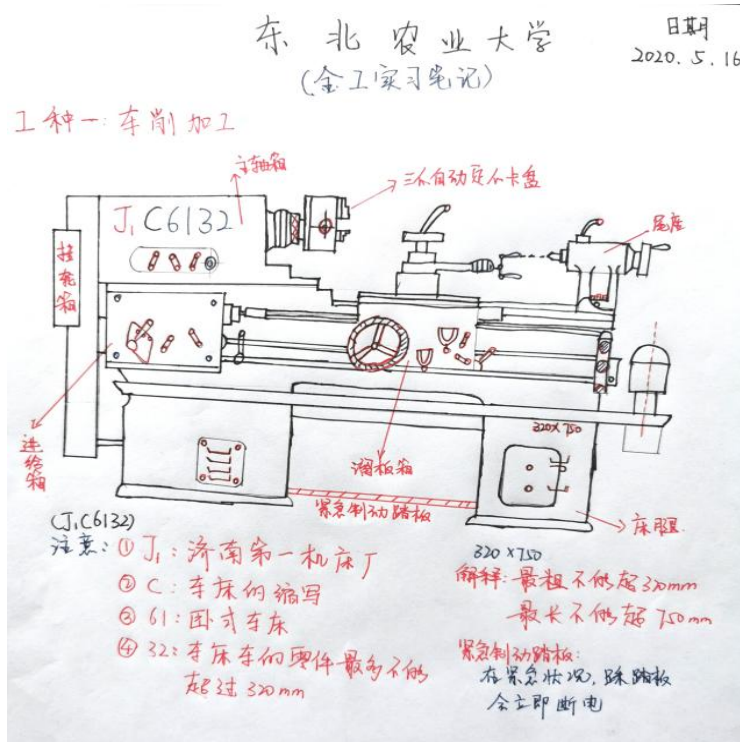 东北农业大学
日期
2020.5.16
(金工实习笔记)
工种一:车削加工
主轴箱
三爪自动定心卡盘
J₁C6132
尾座
挂轮箱
进给箱
320×750
溜板箱
紧急制动踏板
床腿
(J₁C6132)
注意:①J₁:济南第一机床厂
②C:车床的缩写
③61:卧式车床
④32:车床车的零件最多不能
超过320mm
320×750
解释:最粗不能超320mm
最长不能超750mm
紧急制动踏板:
在紧急状况,踩踏板
会立即断电